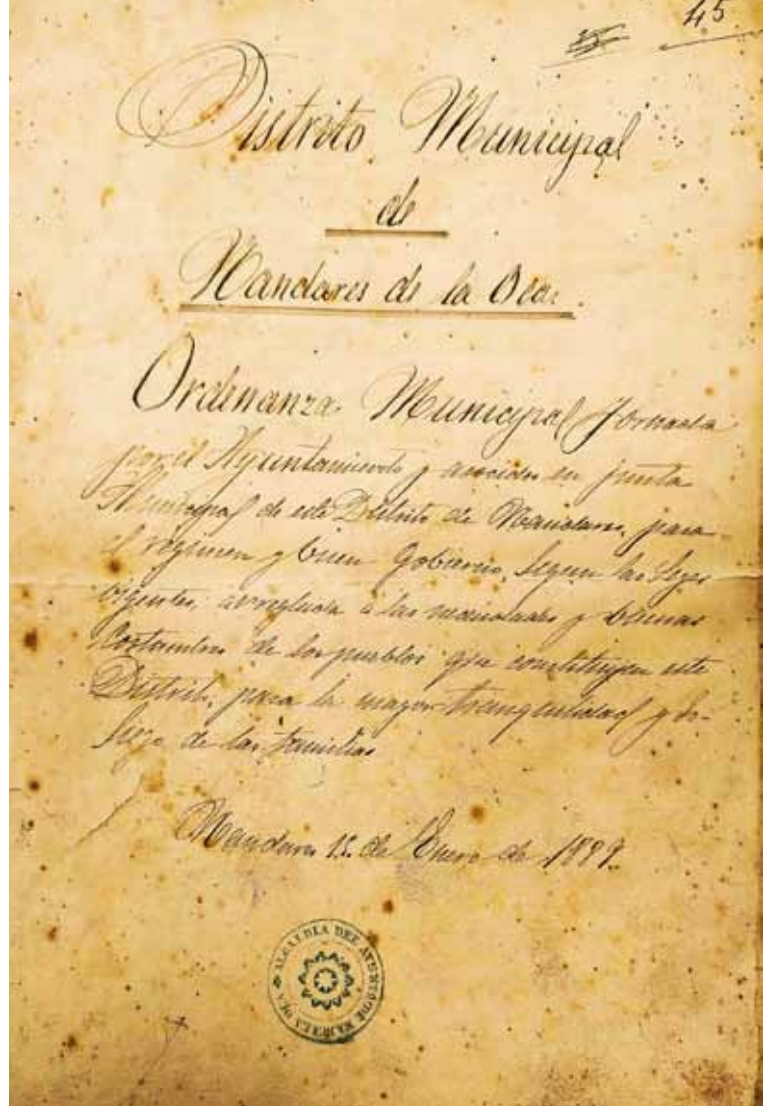 45
Distrito Municipal
de
Nandares de la Oca.
Ordenanza Municipal formada
por el Ayuntamiento y asociados en junta
Municipal de este Distrito de Nandares, para
el regimen y buen Gobierno, segun las leyes
vigentes, arreglada á las necesidades y buenas
Costumbres de los pueblos que constituyen este
Distrito, para la mayor tranquilidad y so-
siego de las familias
Nandares 15 de Enero de 1889.
ALCALDIA DEL AYUNT DE